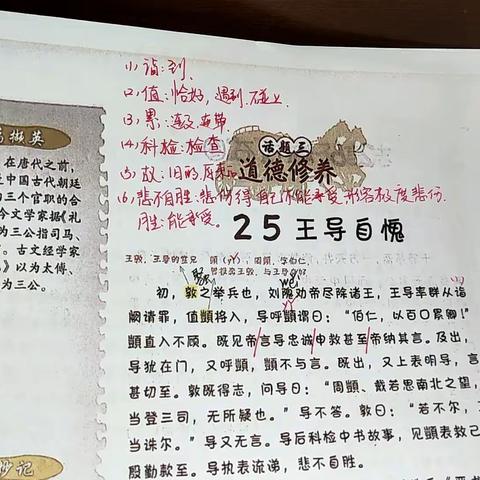 (1) 诣：到.
(2) 值：恰好，遇到.碰上
(3) 累：连及，连带
(4) 科检：检查
(5) 故：旧的，原来的
(6) 悲不自胜：悲伤得自己不能承受.形容极度悲伤.
胜：能承受。
话题三
道德修养
25王导自愧
初，敦之举兵也，刘隗劝帝尽除诸王，王导率群从诣
阙请罪，值顗将入，导呼顗谓曰：“伯仁，以百口累卿！”
顗直入不顾。既见帝言导忠诚申救甚至帝纳其言。及出，
导犹在门，又呼顗，顗不与言。既出，又上表明导，言
甚切至。敦既得志，问导曰：“周顗、戴若思南北之望，
当登三司，无所疑也。”导不答。敦曰：“若不尔，
当诛尔。”导又无言。导后科检中书故事，见顗表救己
殷勤款至。导执表流涕，悲不自胜。
撷英
在唐代之前，
中国古代朝廷
三个官职的合
今文学家据《礼
三公指司马、
古文经学家
》以为太傅、
为三公。
抄记
wěi